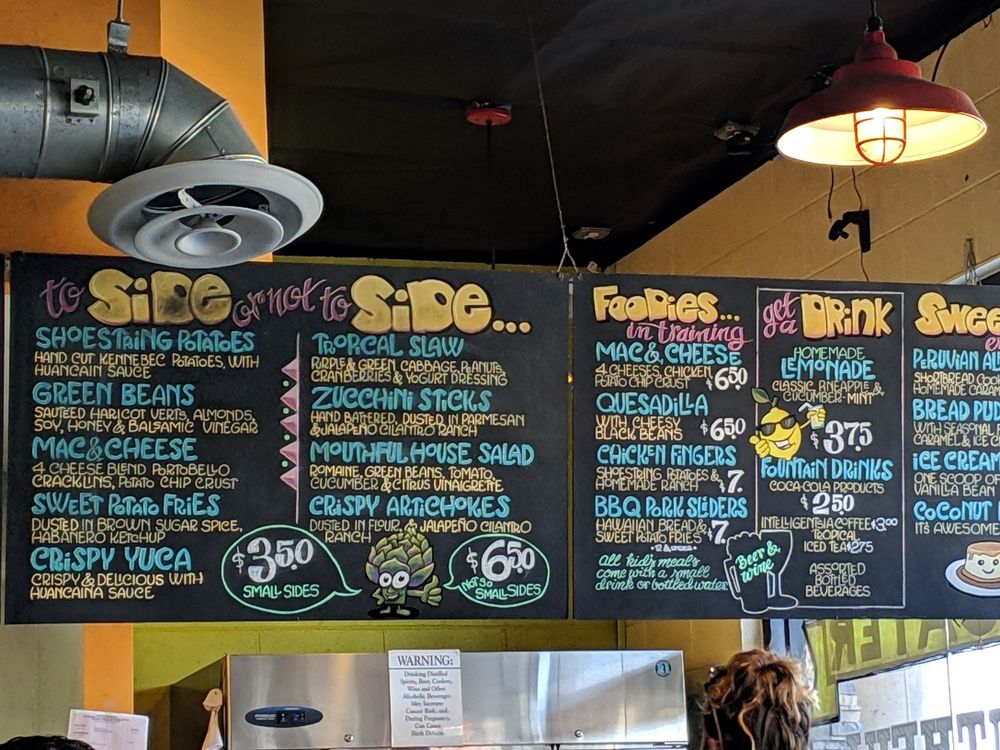 to SiDe or not to SiDe...
SHOESTRING POTATOES
HAND CUT KENNEBEC POTATOES, WITH
HUANCAIN SAUCE
GREEN BEANS
SAUTEED HARICOT VERTS, ALMONDS,
SOY, HONEY & BALSAMIC VINEGAR
MAC & CHEESE
4 CHEESE BLEND PORTOBELLO
CRACKLINS, POTATO CHIP CRUST
SWEET POTATO FRIES
DUSTED IN BROWN SUGAR SPICE,
HABANERO KETCHUP
CRISPY YUCA
CRISPY & DELICIOUS WITH
HUANCAINA SAUCE
TROPICAL SLAW
PURPLE & GREEN CABBAGE, PEANUTS,
CRANBERRIES & YOGURT DRESSING
ZUCCHINI STICKS
HAND BATTERED, DUSTED IN PARMESAN
& JALAPEÑO CILANTRO RANCH
MOUTHFUL HOUSE SALAD
ROMAINE, GREEN BEANS, TOMATO,
CUCUMBER & CITRUS VINAIGRETTE
CRISPY ARTICHOKES
DUSTED IN FLOUR, & JALAPEÑO CILANTRO
RANCH
$3.50
SMALL SIDES
$6.50
NOT SO SMALL SIDES
FOODIES...
in training
MAC & CHEESE
4 CHEESES, CHICKEN,
POTATO CHIP CRUST $6.50
QUESADILLA
WITH CHEESY
BLACK BEANS $6.50
CHICKEN FINGERS
SHOESTRING POTATOES &
HOMEMADE RANCH $7.
BBQ PORK SLIDERS
HAWAIIAN BREAD &
SWEET POTATO FRIES $7.
12 & UNDER
All kid's meals
come with a small
drink or bottled water.
get a DRINK
HOMEMADE
LEMONADE
CLASSIC, PINEAPPLE &
CUCUMBER-MINT
$3.75
FOUNTAIN DRINKS
COCA-COLA PRODUCTS
$2.50
INTELLIGENTSIA COFFEE $3.00
TROPICAL
ICED TEA $2.75
ASSORTED
BOTTLED
BEVERAGES
Beer &
wine
PERUVIAN
SHORTBREAD
HOMEMADE
BREAD
WITH SEASONAL
CARAMEL &
ICE CREAM
ONE SCOOP OF
VANILLA BEAN
COCONUT
IT'S AWESOME
WARNING:
Drinking Distilled
Spirits, Beer, Coolers,
Wine and Other
Alcoholic Beverages
May Increase
Cancer Risk, and,
During Pregnancy,
Can Cause
Birth Defects.